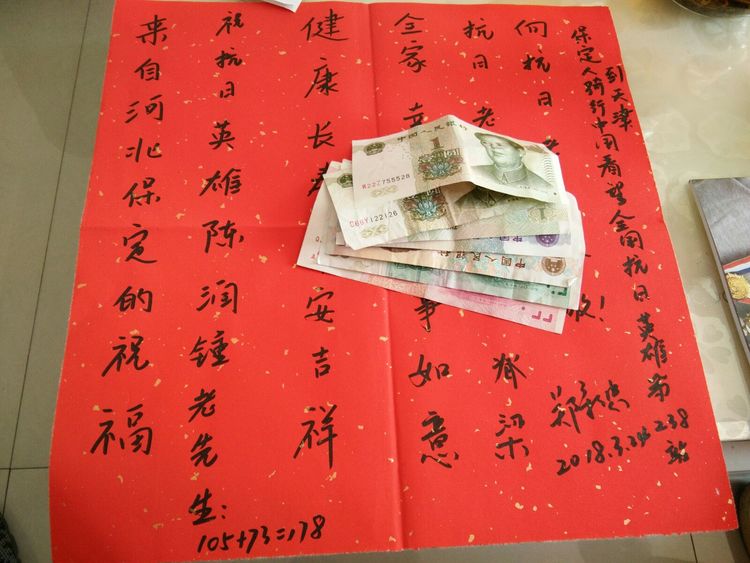 来自河北保定的祝福
祝抗日英雄陈润锺老先生:
105+73=178
健康长 安吉祥
全家幸 事如意
抗日老 脊梁
向抗日老 !
郑 忠
2018.3.24
到天津
保定人骑行中国看望全国抗日英雄第238站
中国人民银行
1
W22Z755528
C69Y122126
1
中国人民